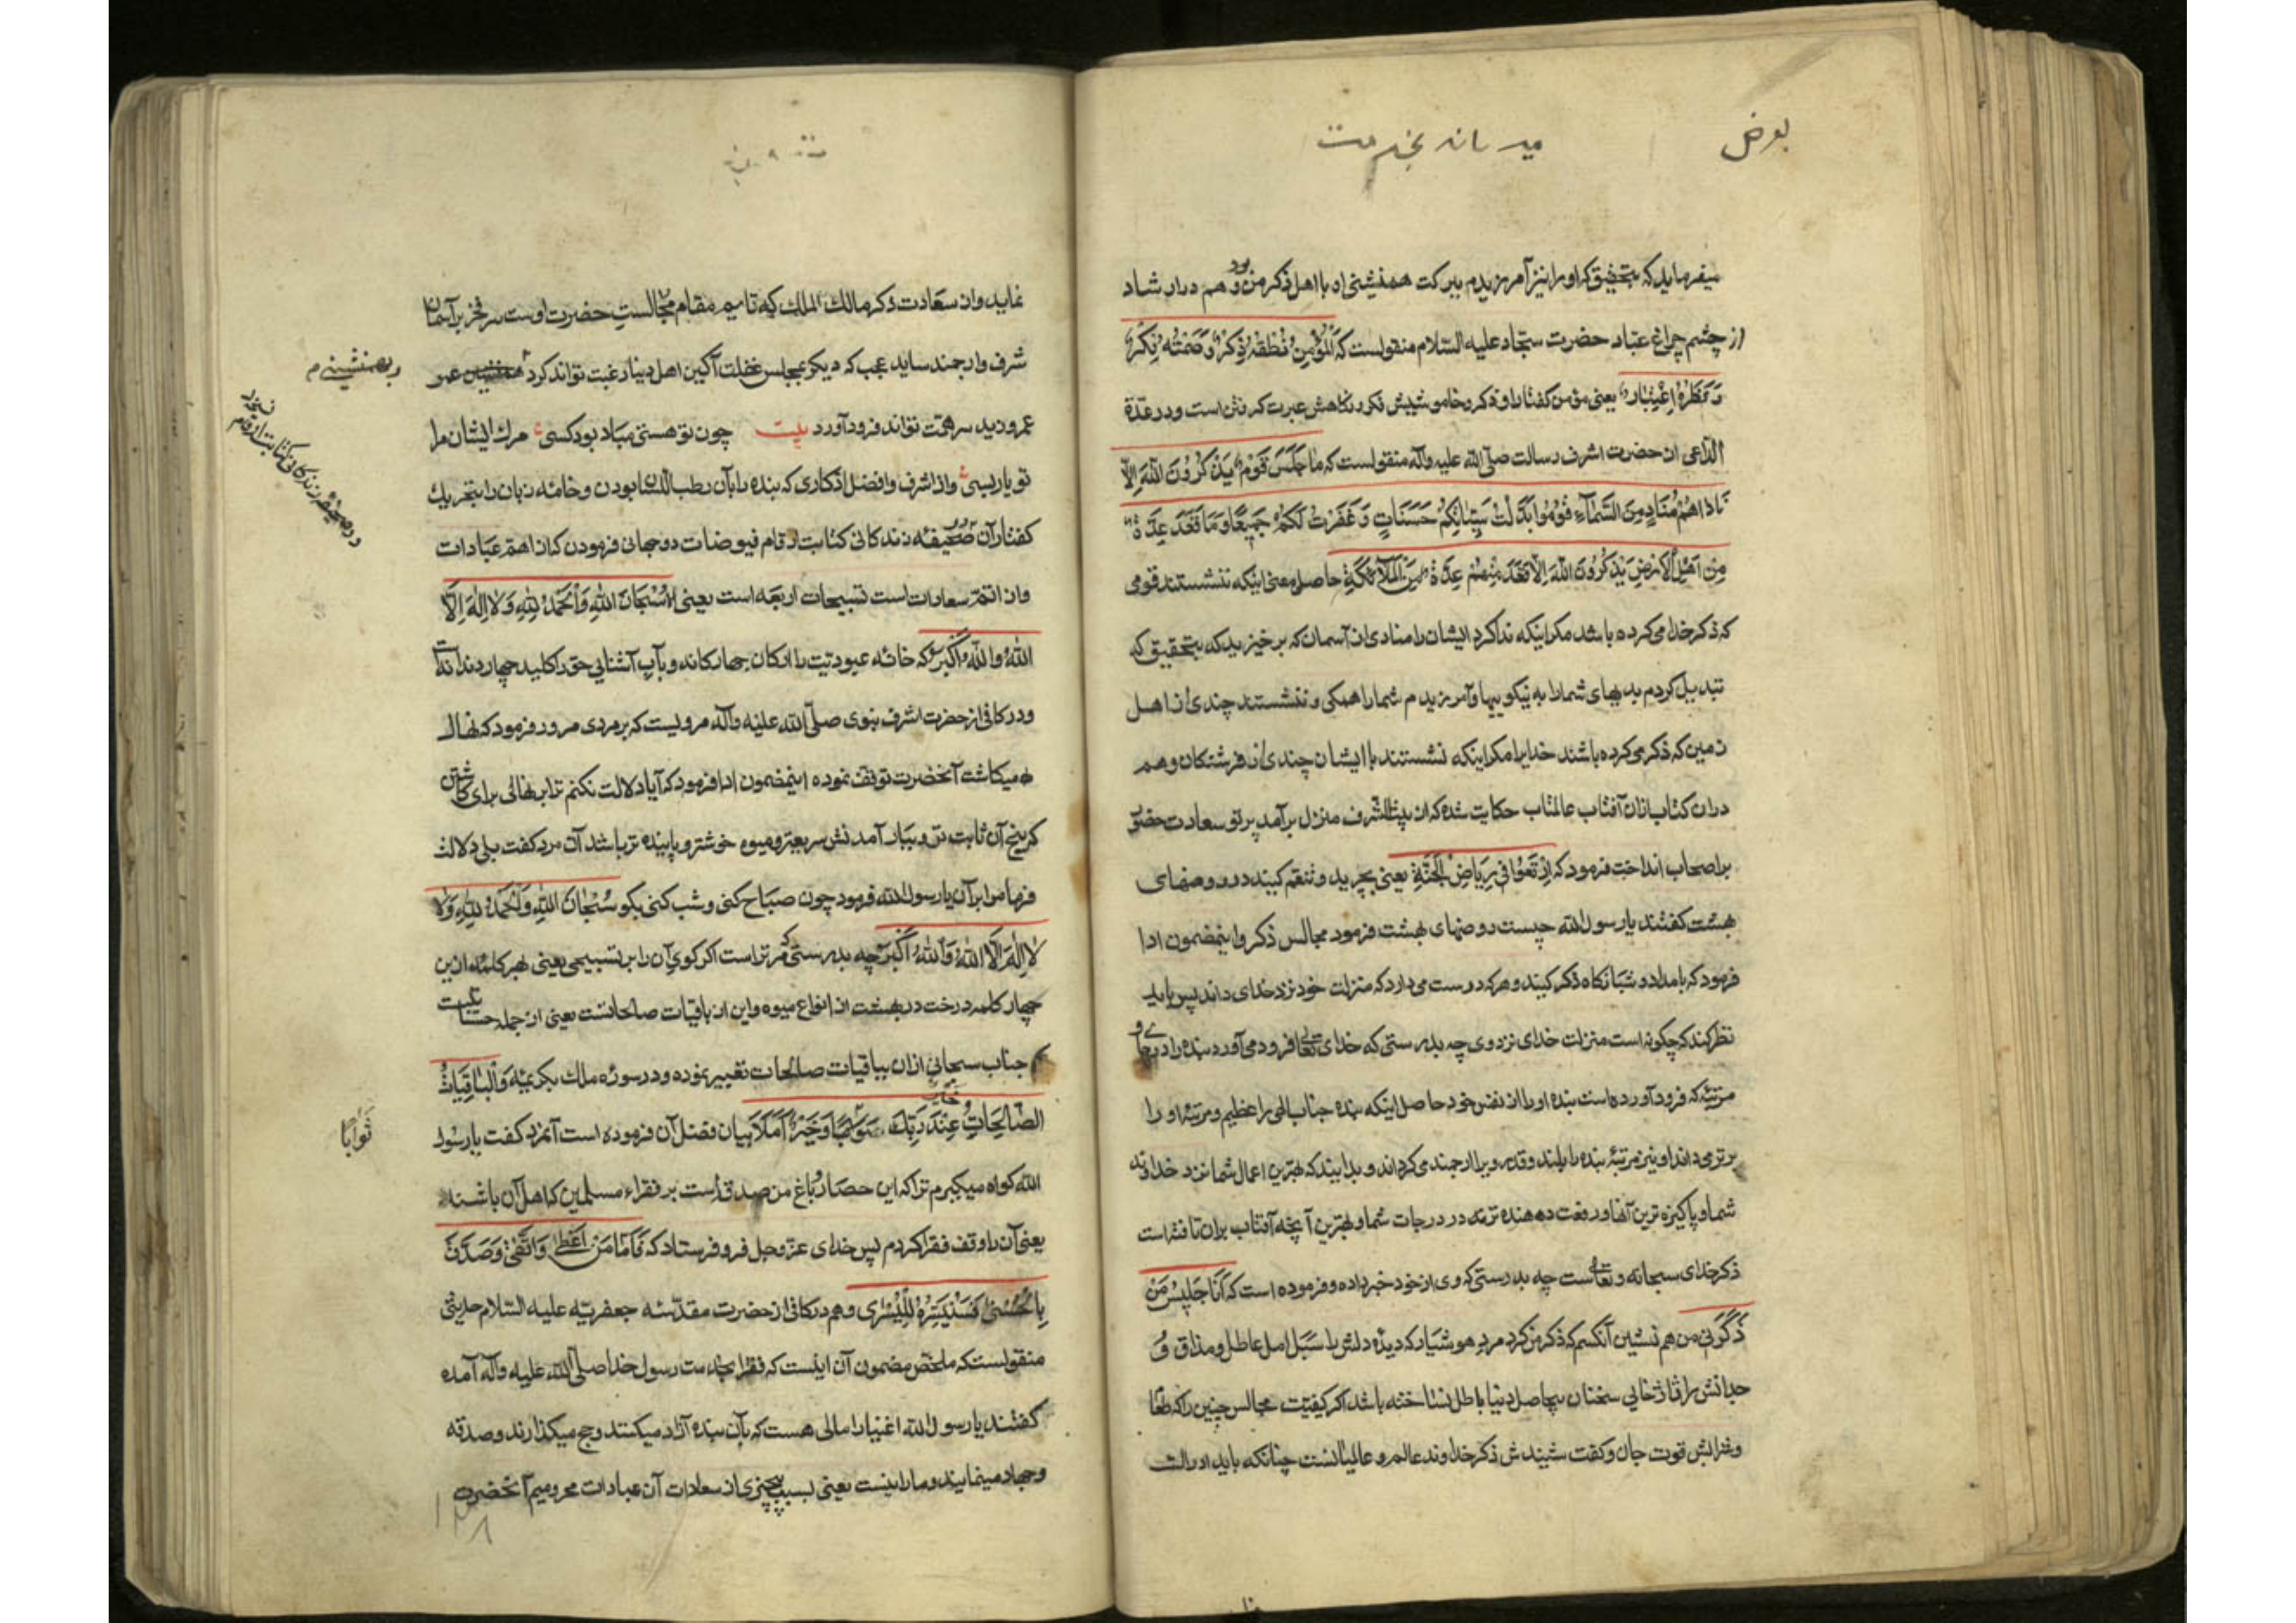 بعرض
میرسانم بخدمت
میفرماید که بتحقیق که او را نیز آمرزیدم ببرکت همنشینی او با اهل ذکر من بود و هم در ارشاد
از چشم چراغ عباد حضرت سجاد علیه السلام منقولست که اَلْمُؤْمِنُ نُطْقُهُ ذِكْرٌ وَ صَمْتُهُ فِكْرٌ
وَ نَظَرُهُ اِعْتِبَارٌ یعنی مؤمن گفتار او ذکر و خاموشیش فکر و نگاهش عبرت گرفتن است و در عدة
الداعی از حضرت اشرف رسالت صلّی الله علیه وآله منقولست که مَا جَلَسَ قَوْمٌ يَذْكُرُونَ اللهَ اِلاّ
نَادَاهُمْ مُنَادٍ مِنَ السَّمَآءِ قُومُوا بَدَّلْتُ سَيِّئَاتِكُمْ حَسَنَاتٍ وَ غَفَرْتُ لَكُمْ جَمِيعًا وَ مَا قَعَدَ عِدَّةٌ
مِنْ اَهْلِ الْاَرْضِ يَذْكُرُونَ اللهَ اِلاّ قَعَدَ مِنْهُمْ عِدَّةٌ مِنَ الْمَلَآئِكَةِ حاصل معنی اینکه ننشستند قومی
که ذکر خدا می‌کرده باشند مگر اینکه ندا کرد ایشان را منادی از آسمان که برخیزید که بتحقیق که
تبدیل کردم بدیهای شما را به نیکوییها و آمرزیدم شما را همگی و ننشستند چندی از اهل
زمین که ذکر می‌کرده باشند خدایرا مگر اینکه نشستند با ایشان چندی از فرشتگان و هم
در ان کتاب از ان آفتاب عالمتاب حکایت شده که از بیت الشرف منزل برآمد پرتو سعادت حضور
بر اصحاب انداخت فرمود که اِرْتَعُوا فِي رِيَاضِ الْجَنَّةِ یعنی بچرید و تنعّم کنید در روضهای
بهشت گفتند یا رسول الله چیست روضهای بهشت فرمود مجالس ذکر و اینمضمون ادا
فرمود که بامداد و شبانگاه ذکر کنید و هر که دوست می‌دارد که منزلت خود نزد خدای داند پس باید
نظر کند که چگونه است منزلت خدای نزد وی چه بدرستی که خدای تعالی فرود می‌آورد بنده را در
مرتبهٔ که فرود آورده است بنده او را از نفس خود حاصل اینکه بنده جناب الهی را عظیم و مرتبهٔ او را
برتر می‌داند او نیز مرتبهٔ بنده را بلند و قدر ویرا ارجمند می‌گرداند و بدانید که بهترین اعمال شما نزد خداوند
شما و پاکیزه ترین آنها و رفعت دهنده تر در درجات شما و بهترین آنچه آفتاب بران تافته است
ذکر خدای سبحانه و تعالی است چه بدرستی که وی از خود خبر داده و فرموده است که اَنَا جَلِيسُ مَنْ
ذَكَرَنِي من هم نشین آنکسم که ذکر من کرد مرد هوشیار که دیدهٔ دلش با سبل امل عاطل و مذاق
را ژاژخایی سخنان بیحاصل دنیا باطل نساخته باشد اگر کیفیت مجالس چنین را که
قوت جان و ذکر خداوند عالم و عالمیانست چنانکه باید ادراک
نماید و از سعادت ذکر مالک الملک که تاسیم مقام مجالست حضرت اوست سر فخر بر آسمان
شرف و ارجمندی ساید عجب که دیگر بمجالس غفلت آگین اهل دنیا رغبت تواند کرد
و بهمنشینی
عمرو و زید سر همّت تواند فرود آورد بیت چون تو هستی مباد بود کسی مرک ایشان را
تو یار بسی و از اشرف و افضل اذکاری که بنده را بآن رطب اللسان بودن و خامهٔ زبان را بتحریک
گفتار آن صحیفهٔ زندگانی کتابت ارقام فیوضات دوجهانی فرمودن که از اهمّ عبادات
و از اتمّ سعادات است تسبیحات اربعه است یعنی سُبْحَانَ اللهِ وَالْحَمْدُ لِلّهِ وَلَا اِلهَ اِلَّا
اللهُ وَاللهُ اَكْبَرُ که خانهٔ عبودیّت را ارکان چهارگانه و باب آشنایی حق را کلید چهار دندانه است
و در کافی از حضرت اشرف نبوی صلّی الله علیه وآله مرویست که بر مردی مرور فرمود که نهال
میکاشت آنحضرت توقف نموده اینمضمون ادا فرمود که آیا دلالت نکنم ترا بر نهالی برای کاشتن
که بیخ آن ثابت تر و ببار آمدنش سریعتر و میوه خوشتر و پاینده تر باشد آن مرد گفت بلی دلالت
فرما مرا بر آن یا رسول الله فرمود چون صباح کنی و شب کنی بگو سُبْحَانَ اللهِ وَالْحَمْدُ لِلّهِ وَلَا
لَا اِلهَ اِلَّا اللهُ وَاللهُ اَكْبَرُ چه بدرستی که مر تراست اگر گوی آن را بر تسبیحی یعنی بهر کلمه ازین
چهار کلمه درخت در بهشت از انواع میوه و این از باقیات صالحاتست یعنی از جمله حسناتیست
که جناب سبحانی از ان بباقیات صالحات تعبیر نموده و در سوره ملک بکریمه وَالْبَاقِيَاتُ
الصَّالِحَاتُ خَيْرٌ عِنْدَ رَبِّكَ ثَوَابًا وَخَيْرٌ اَمَلًا بیان فضل آن فرموده است آنمرد گفت یا رسول
ثَوَابًا
الله گواه میگیرم ترا که این حصار و باغ من صدقه است بر فقراء مسلمین که اهل آن باشند
یعنی آن را وقف فقرا کردم پس خدای عزّ و جل فرو فرستاد که فَاَمَّا مَنْ اَعْطٰى وَاتَّقٰى وَصَدَّقَ
بِالْحُسْنٰى فَسَنُيَسِّرُهُ لِلْيُسْرٰى و هم در کافی از حضرت مقدّسه جعفریّه علیه السّلام حدیثی
منقولست که ملخّص مضمون آن اینست که فقرا بخدمت رسول خدا صلّی الله علیه وآله آمده
گفتند یا رسول الله اغنیا را مالی هست که بآن بنده آزاد میکنند و حج میگذارند و صدقه
و جهاد مینمایند و ما را نیست یعنی بسبب بیچیزی از سعادات آن عبادات محرومیم آنحضرت